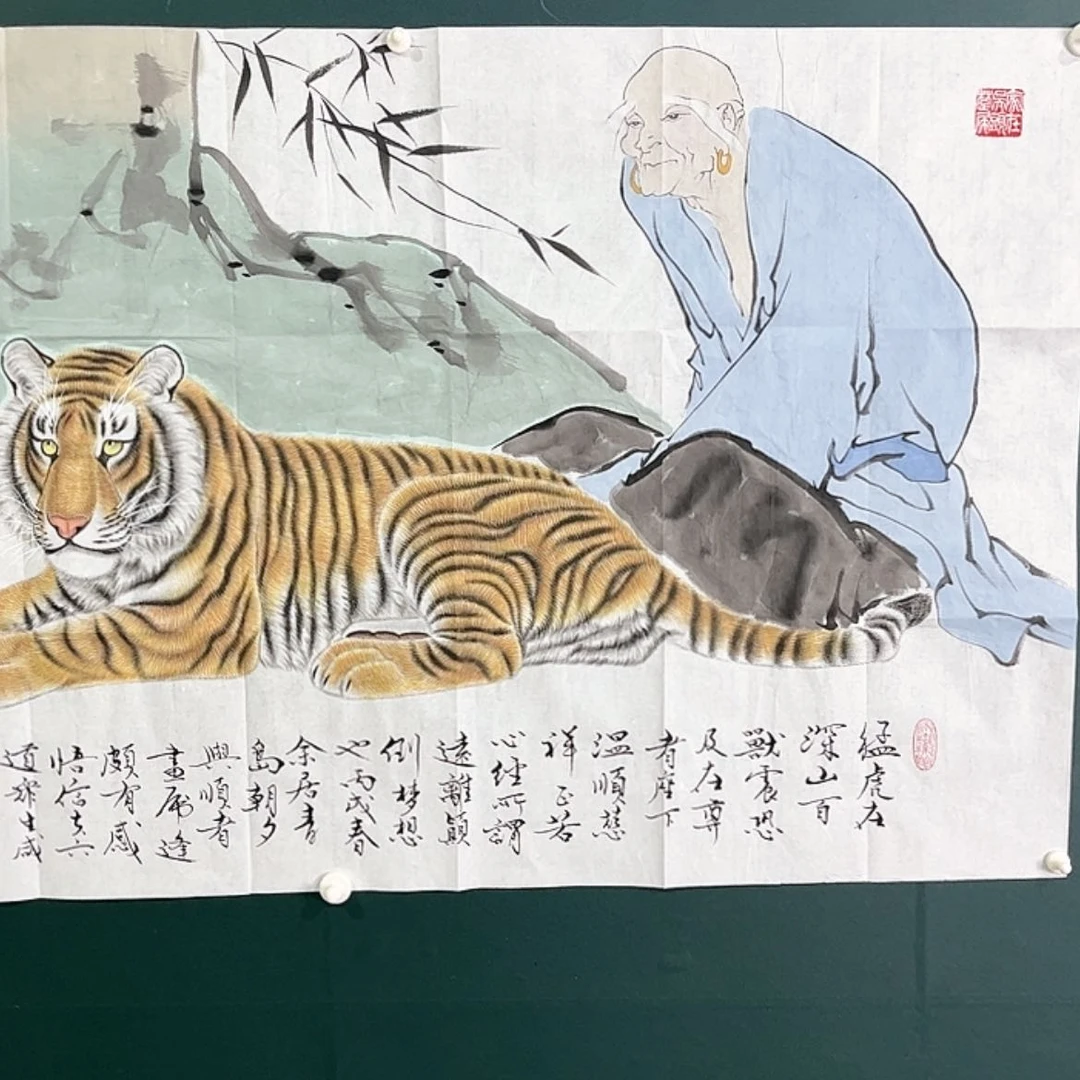 猛虎在
深山百
獸震恐
及在尊
者座下
溫順慈
祥正若
心經所謂
遠離顛
倒梦想
也丙戌春
余居青
島朝夕
與順者
畫虎逢
頗有感
悟信
道